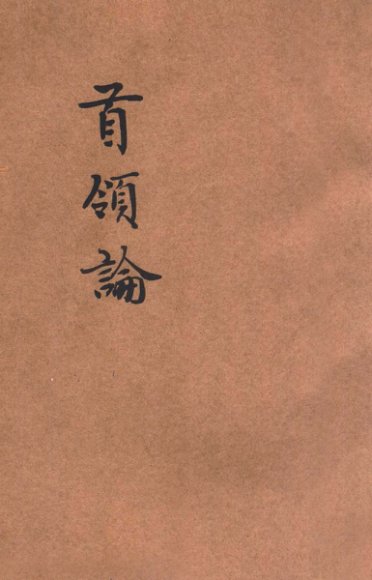 首領論